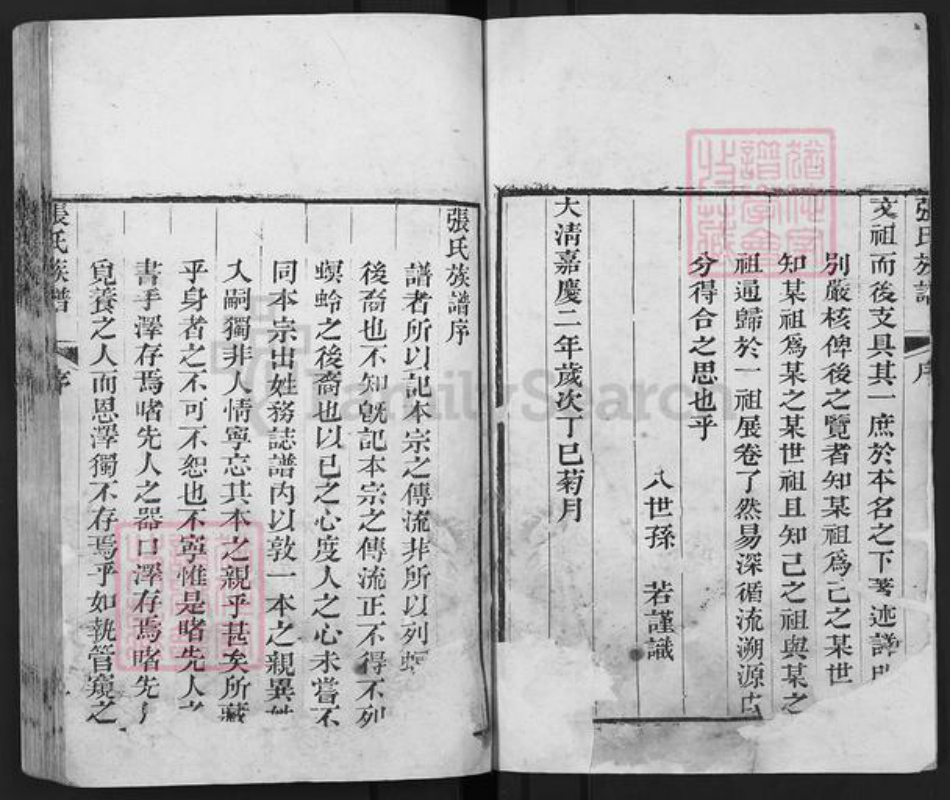 張氏族譜
序
文祖而後支具其一庶於本名之下著述詳
別嚴核俾後之覽者知某祖爲己之某世
知某祖爲某之某世祖且知己之祖與某之
祖通歸於一祖展卷了然易深循流溯源
分得合之思也乎
八世孫 若謹識
大清嘉慶二年歲次丁巳菊月
張氏族譜序
譜者所以記本宗之傳流非所以列螟
後裔也不知旣記本宗之傳流正不得不列
螟蛉之後裔也以已之心度人之心未嘗不
同本宗出姓務誌譜內以敦一本之親異姓
入嗣獨非人情寧忘其本之親乎甚矣所藏
乎身者之不可不恕也不寧惟是睹先人之
書手澤存焉睹先人之器口澤存焉睹先
覓養之人而恩澤獨不存焉乎如執管窺之
張氏族譜
序
FamilySearch